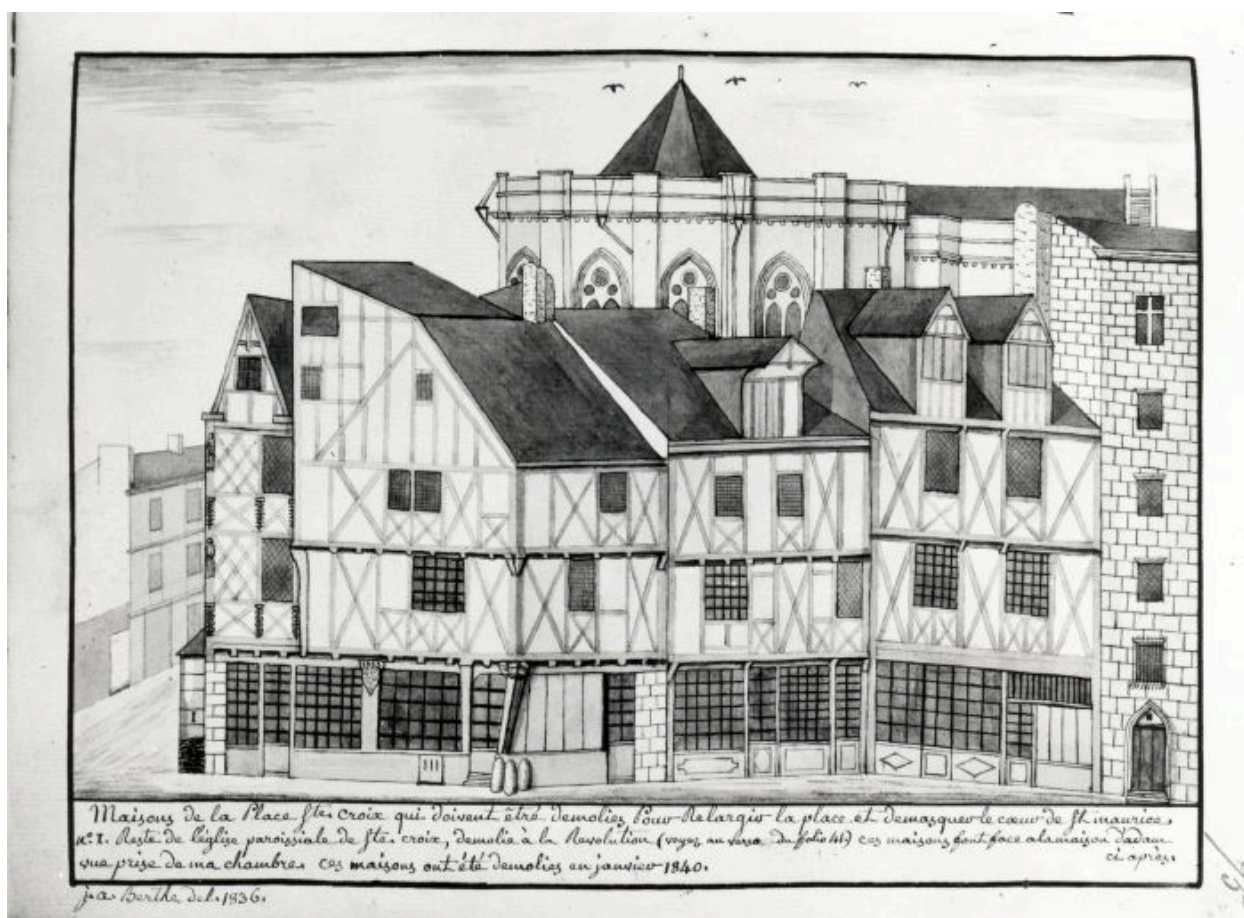 Maisons de la Place Ste. Croix qui doivent êtré demolies Pour Relargir la place et demasquer le cœur de St. maurice.
n°. I. Reste de l'église paroissiale de Ste. croix, demolie à la Revolution (voyez au verso du folio 41) ces maisons font face a la maison d'adam
ci après.
vue prise de ma chambre. ces maisons ont été demolies en janvier 1840.
j. a. Berthe del. 1836.